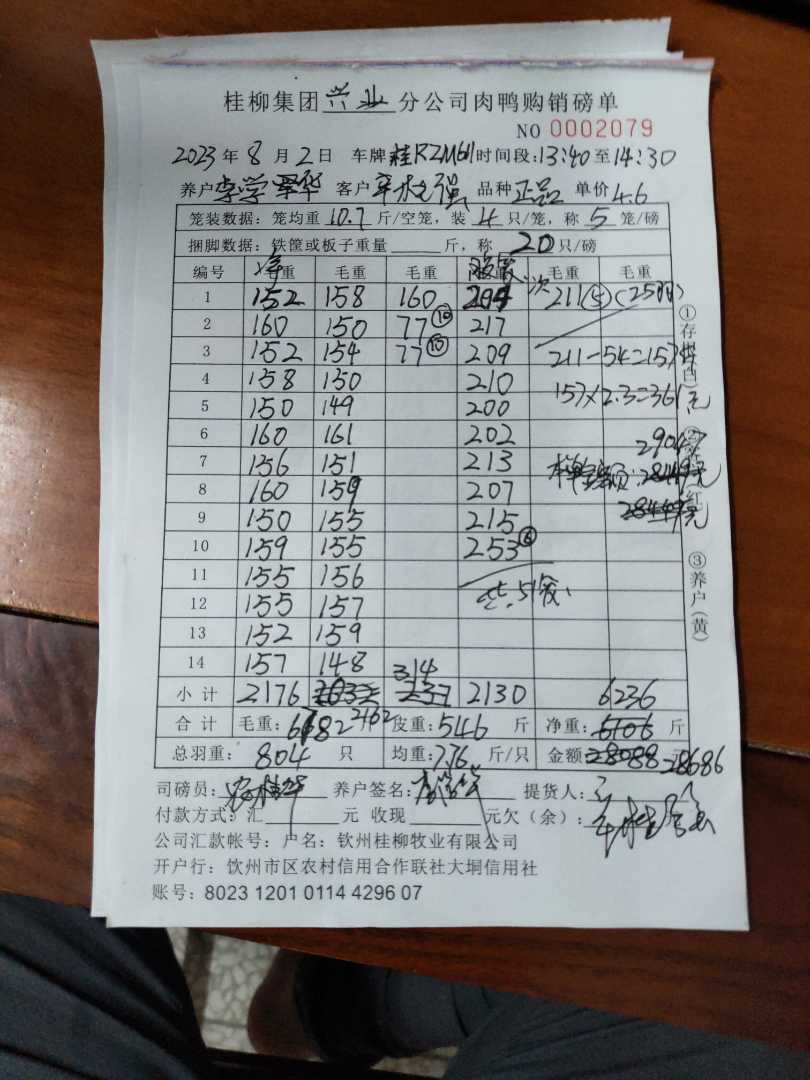 桂柳集团兴业分公司肉鸭购销磅单
NO 0002079
2023年8月2日 车牌桂RZM611时间段:13:40至14:30
养户李学华 客户 强 品种 正品 单价4.6
笼装数据:笼均重10.7斤/空笼,装4只/笼,称5笼/磅
捆脚数据:铁筐或板子重量 斤,称20只/磅
编号 重 毛重 毛重 毛重 毛重
1 152 158 160 204 211⑤(25羽)
2 160 150 77⑩ 217
3 152 154 77⑩ 209 211-54=157
4 158 150 210 157×2.3=361元
5 150 149 200
6 160 161 202 29047
7 156 151 213
8 160 159 207
9 150 155 215
10 159 155 253⑥
11 155 156
12 155 157 共51
13 152 159
14 157 148
小计 2176 2162 314 2130 6236
合计 毛重:6782 皮重:546斤 净重: 斤
总羽重:804只 均重:7.76斤/只 金额 28686
司磅员: 养户签名: 提货人:
付款方式:汇 元 收现 元欠(余):
公司汇款帐号:户名:钦州桂柳牧业有限公司
开户行:钦州市区农村信用合作联社大垌信用社
账号:8023 1201 0114 4296 07
①存根(白)
②
(红)
③养户(黄)